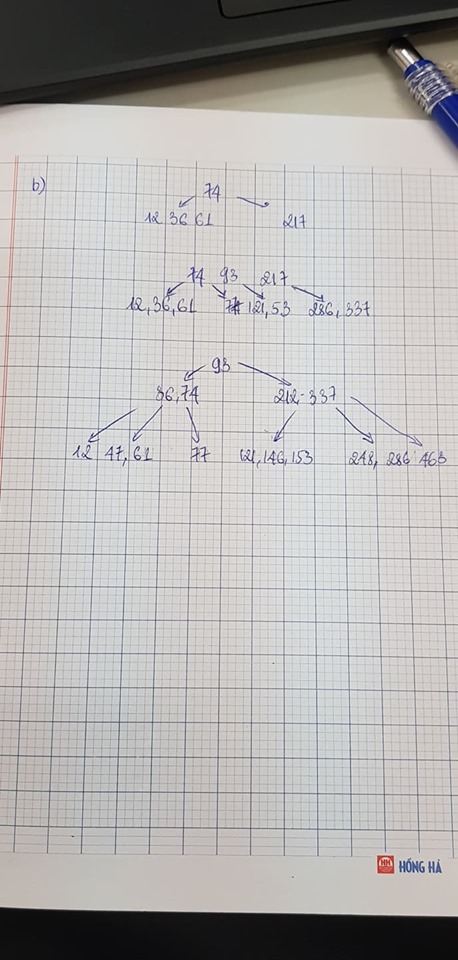 b)
74
12 36 61 217
74 93 217
12, 36, 61 77 121, 53 286, 337
93
36, 74 212, 337
12 47, 61 77 121, 146, 153 248, 286 463
HỒNG HÀ